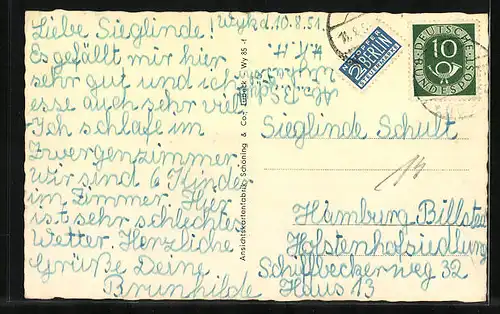 Liebe Sieglinde!
Es gefällt mir hier
sehr gut und ich
esse auch sehr viel.
Ich schlafe im
Zwergenzimmer.
Wir sind 6 Kinder
im Zimmer. Hier
ist sehr schlechtes
Wetter. Herzliche
Grüße Deine
Brunhilde
Wyk d. 10.8.51
Ansichtskartenfabrik Schöning & Co., Lübeck - Wy 85 -f
NOTOPFER
2 BERLIN
STEUERMARKE
DEUTSCHE
10
BUNDESPOST
Sieglinde Schult
13
Hamburg Billstedt
Holstenhofsiedlung
Schiffbeckerweg 32
Haus 13